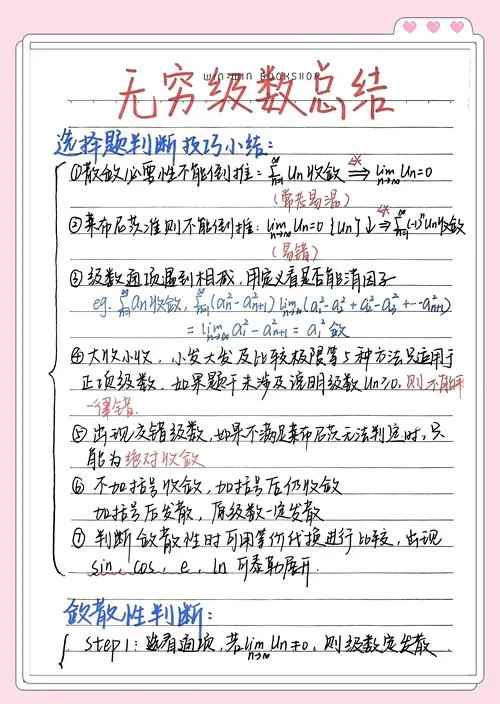 WIN-WIN BOOKSHOP
无穷级数总结
选择题判断技巧小结:
①散敛必要性不能倒推: ∑_{n=1}^{∞} Un 收敛 ⇒ lim_{n→∞} Un=0
(常考易混)
②莱布尼茨准则不能倒推: lim_{n→∞} Un=0 {Un}↓ ⇒ ∑_{n=1}^{∞}(-1)^n Un收敛
(易错)
③ 级数通项遇到相减, 用定义看是否能消因子
eg. ∑_{n=1}^{∞} an收敛, ∑_{n=1}^{∞}(a_n^2-a_{n+1}^2) lim_{n→∞}(a_1^2-a_2^2+a_2^2-a_3^2+…-a_{n+1}^2)
= lim_{n→∞} a_1^2-a_{n+1}^2 = a_1^2 敛
④ 大收小收, 小发大发及比较极限等5种方法只适用于
正项级数, 如果题干未涉及说明级数Un≥0, 则不能用
一律错.
⑤ 出现交错级数, 如果不满足莱布尼茨无法判定时, 只
能为绝对收敛
⑥ 不加括号收敛, 加括号后仍收敛
加括号后发散, 原级数一定发散
⑦ 判断敛散性时可用等价代换进行比较, 出现
sin, cos, e, ln 可泰勒展开.
敛散性判断:
Step1: 选看通项, 若lim_{n→∞} Un≠0, 则级数定发散